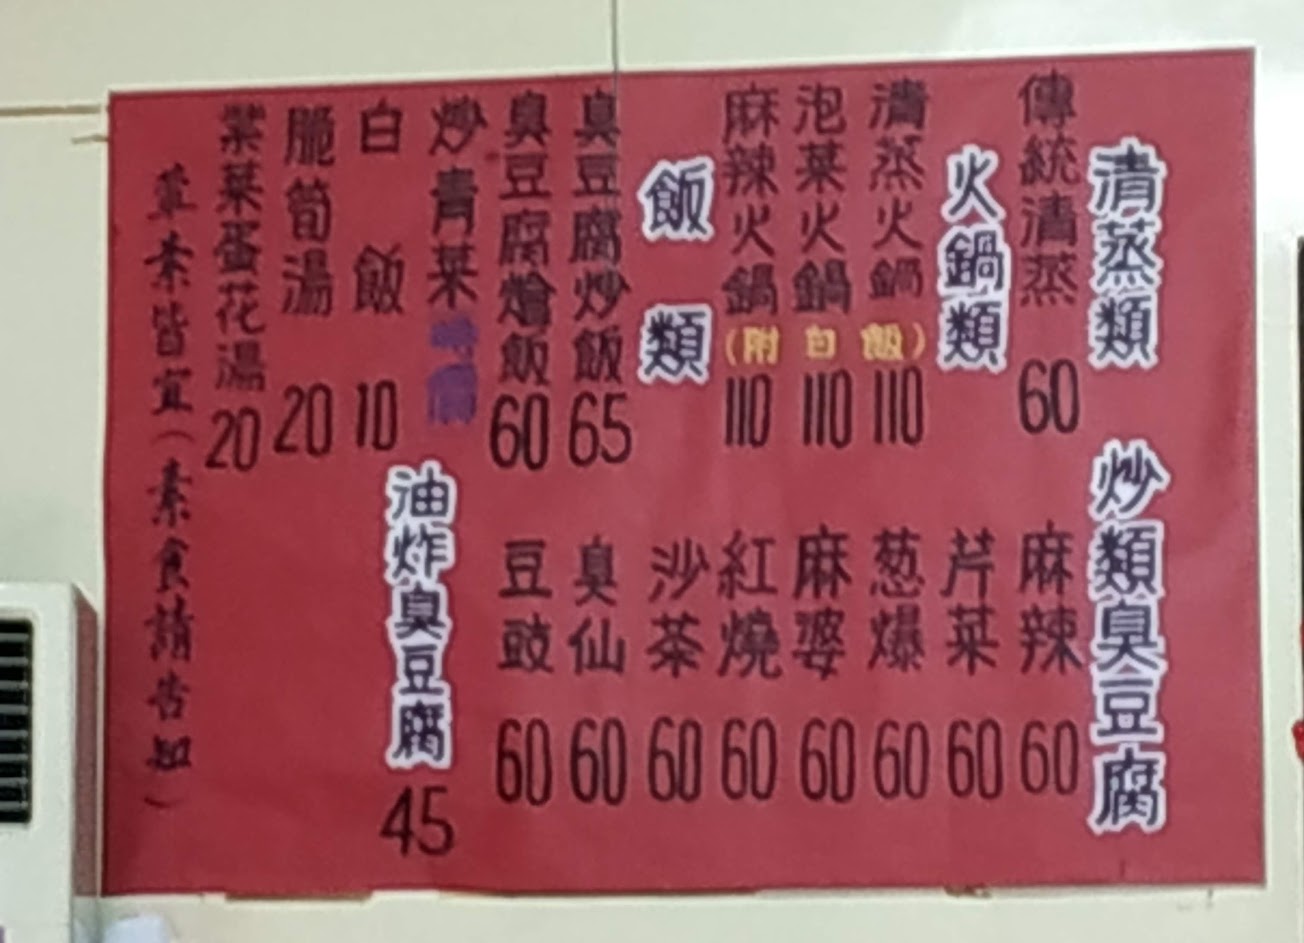 清蒸類
傳統清蒸 60
火鍋類
清蒸火鍋 110
泡菜火鍋 110
麻辣火鍋 110
(附白飯)
飯類
臭豆腐炒飯 65
臭豆腐燴飯 60
炒青菜 時價
白飯 10
脆筍湯 20
紫菜蛋花湯 20
炒類臭豆腐
麻辣 60
芹菜 60
葱爆 60
麻婆 60
紅燒 60
沙茶 60
臭仙 60
豆豉 60
油炸臭豆腐 45
葷素皆宜(素食請告知)